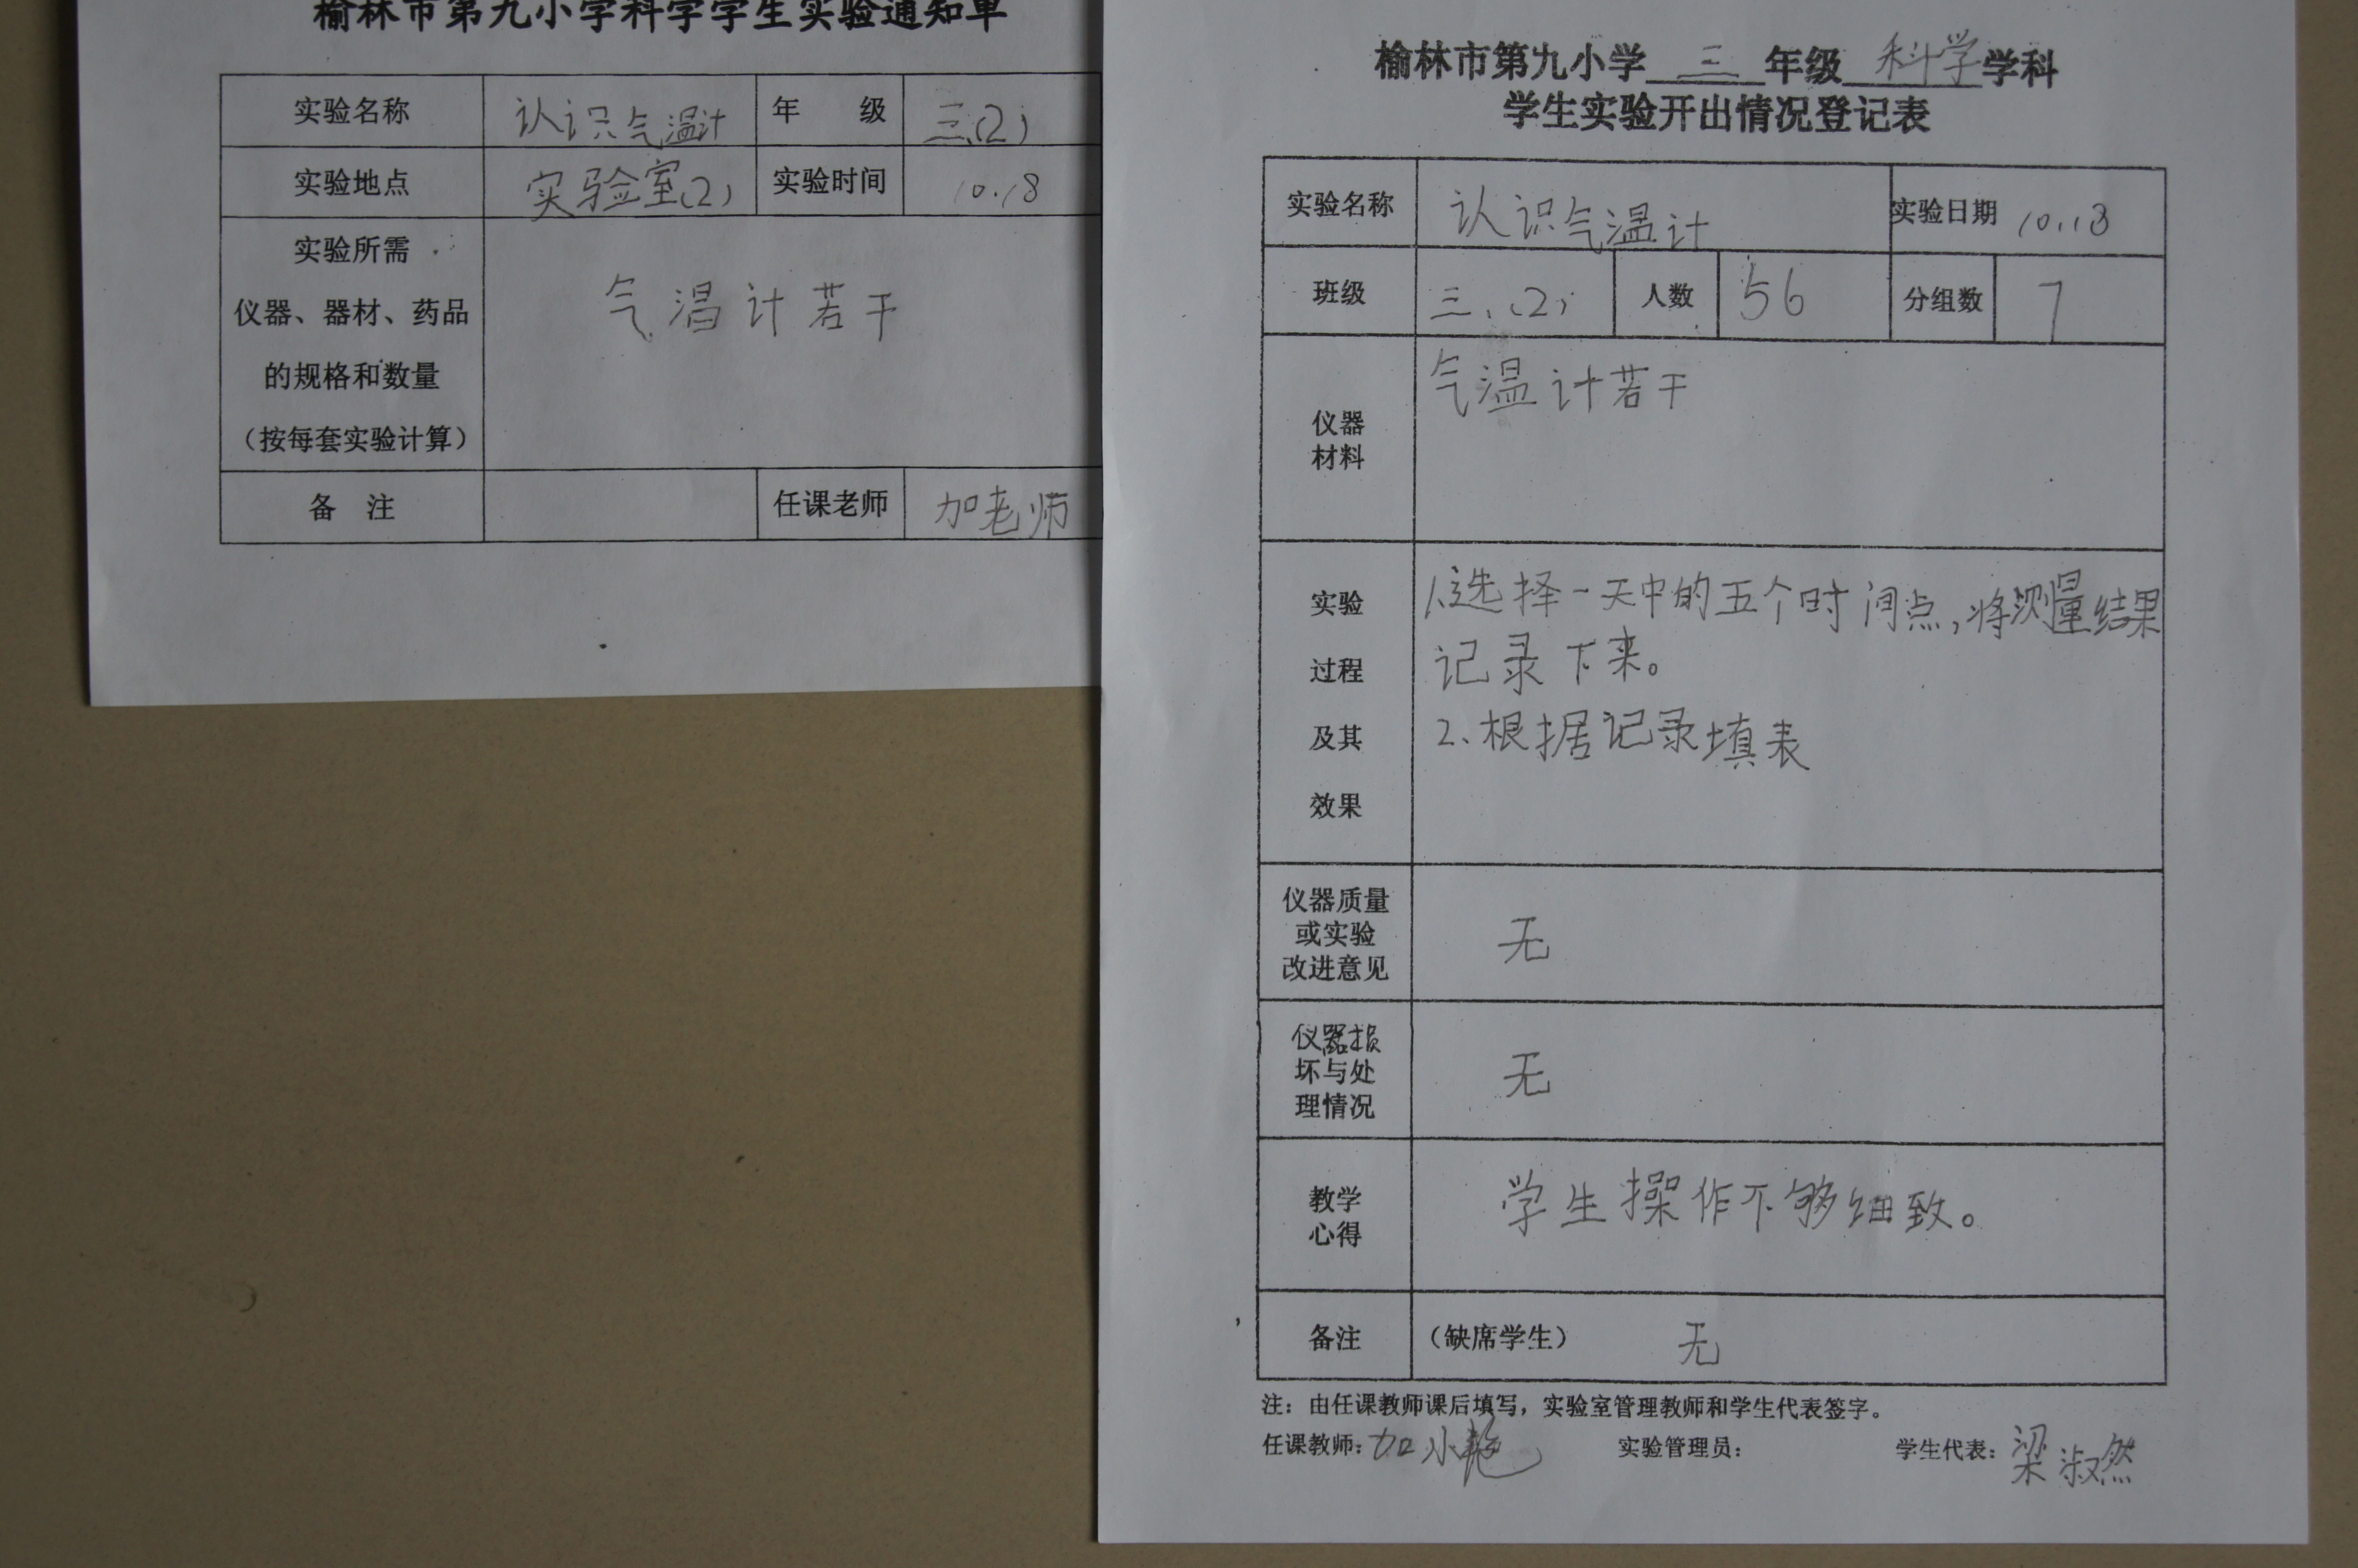 榆林市第九小学科学学生实验通知单
实验名称 认识气温计 年 级 三(2)
实验地点 实验室(2) 实验时间 10.18
实验所需
仪器、器材、药品
的规格和数量
（按每套实验计算）
气温计若干
备 注 任课老师 加老师
榆林市第九小学 三 年级 科学 学科
学生实验开出情况登记表
实验名称 认识气温计 实验日期 10.18
班级 三.(2) 人数 56 分组数 7
仪器
材料
气温计若干
实验
过程
及其
效果
1.选择一天中的五个时间点,将测量结果
记录下来。
2.根据记录填表
仪器质量
或实验
改进意见
无
仪器损
坏与处
理情况
无
教学
心得
学生操作不够细致。
备注 （缺席学生） 无
注：由任课教师课后填写，实验室管理教师和学生代表签字。
任课教师：加小艳 实验管理员： 学生代表：梁淑然